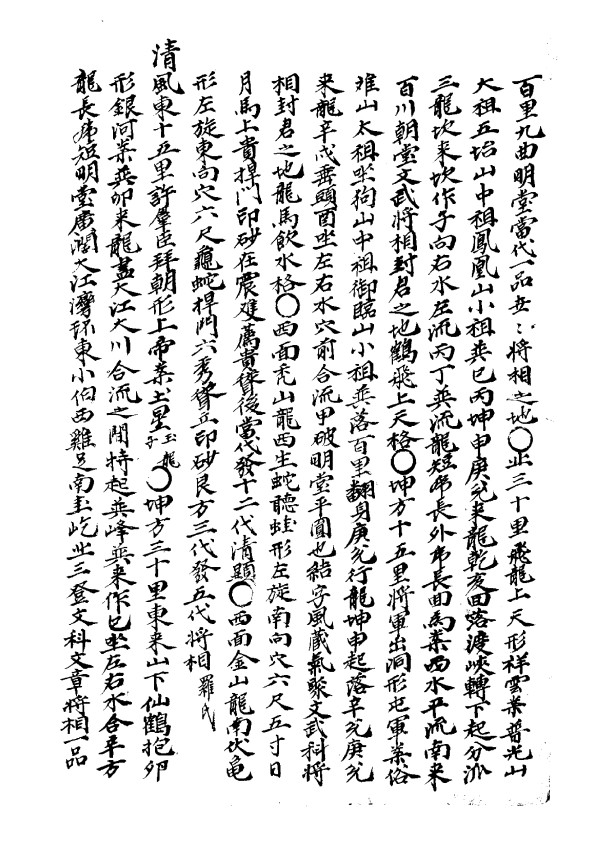 百里九曲明堂當代一品世々將相之地○北三十里飛龍上天形祥雲案普光山
大祖五坮山中祖鳳凰山小祖巽巳丙坤申庚兌來龍乾亥回落渡峽轉下起分派
三龍坎來坎作子向右水左流丙丁巽流龍短虎長外虎長回為案西水平流南來
百川朝堂文武將相封君之地鶴飛上天格○坤方十五里將軍出洞形屯軍案俗
難山太祖坐狗山中祖御臨山小祖巽落百里翻身庚兌行龍坤申起落辛兌庚兌
來龍辛戌垂頭酉坐左右水穴前合流甲破明堂平圓也結字風藏氣聚文武科將
相封君之地龍馬飲水格○西面禿山龍西生蛇聽蛙形左旋南向穴六尺五寸日
月馬上貴捍門印砂在震巽薦貴聳後當代發十二代清顯○西面金山龍南坎龜
形左旋東向穴六尺龜蛇捍門六秀聳立印砂艮方三代發五代將相 羅氏
清風東十五里許羣臣拜朝形上帝案土星 玉龍子○坤方三十里東來山下仙鶴抱卵
形銀河案巽卯來龍盡大江大川合流之間特起巽峰巽來作巳坐左右水合辛方
龍長虎短明堂廣濶大江灣環東小伯西雞足南圭屹此三登文科文章將相一品